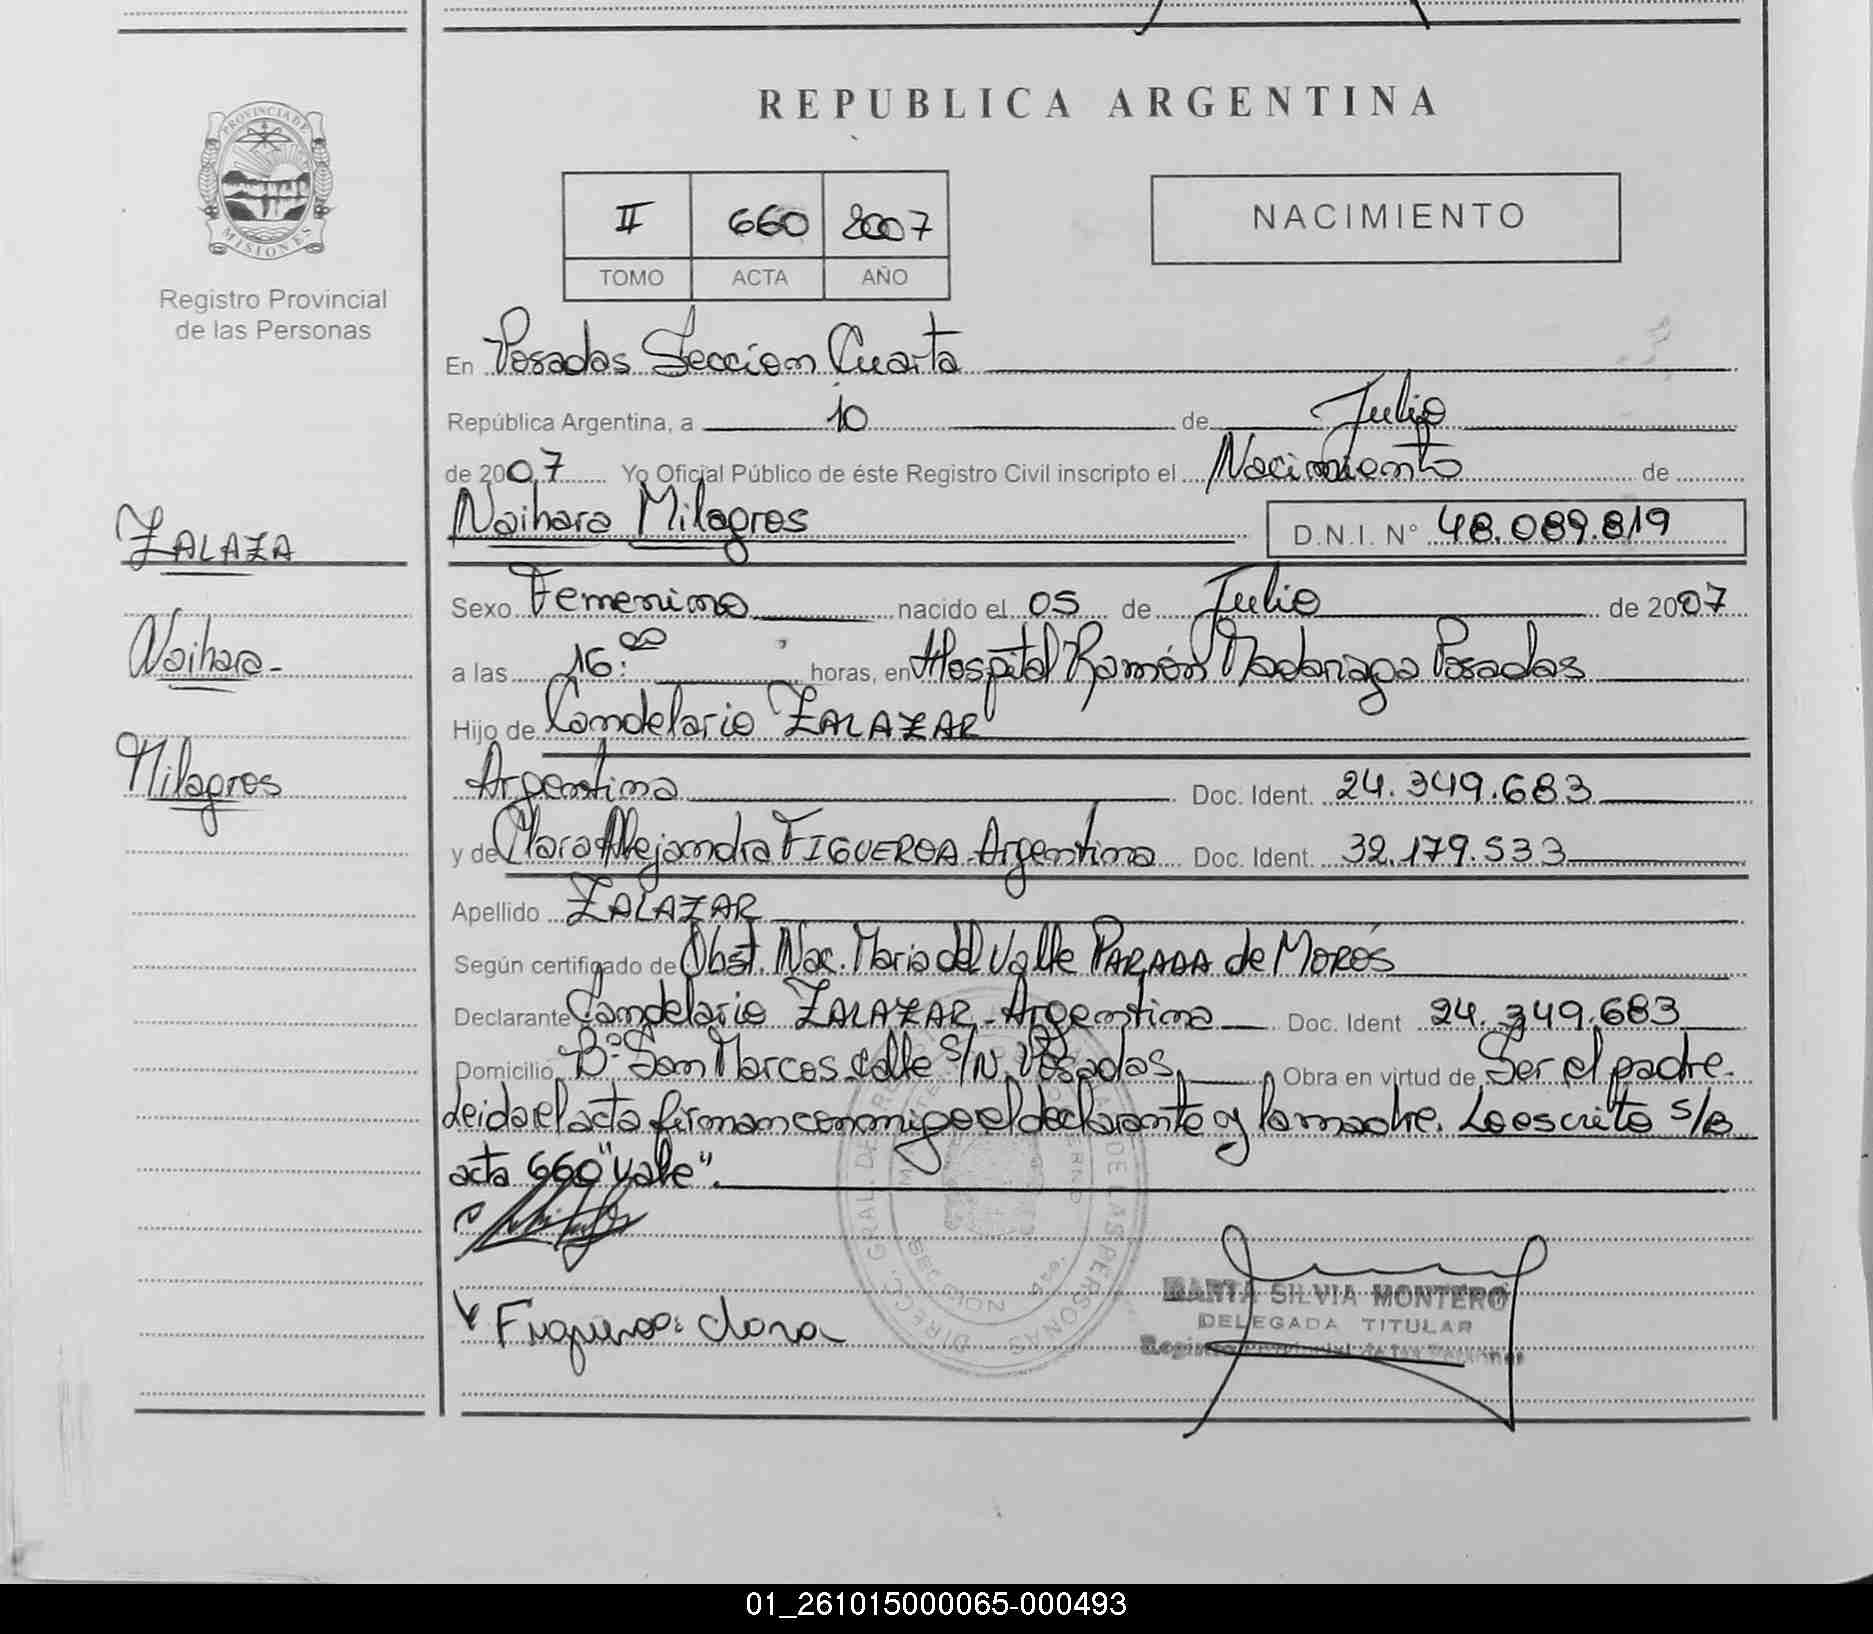 REPUBLICA ARGENTINA
PROVINCIA DE MISIONES
Registro Provincial
de las Personas
II 660 2007
TOMO ACTA AÑO
NACIMIENTO
En Posadas Seccion Cuarta
República Argentina, a 10 de Julio
de 2007 Yo Oficial Público de éste Registro Civil inscripto el Nacimiento de
Naihara Milagros D.N.I. Nº 48.089.819
ZALAZA
Naihara-
Milagros
Sexo Femenino nacido el 05 de Julio de 2007
a las 16:00 horas, en Hospital Ramón Madariaga Posadas
Hijo de Candelario ZALAZAR
Argentina Doc. Ident. 24.349.683
y de Clara Alejandra FIGUEROA-Argentina Doc. Ident. 32.179.533
Apellido ZALAZAR
Según certificado de Obst. Nac. Maria del Valle PARADA de MOROS
Declarante Candelario ZALAZAR-Argentina Doc. Ident 24.349.683
Domicilio Bº San Marcos calle S/N Posadas Obra en virtud de Ser el padre.
Leida el acta firman conmigo el declarante y la madre. Lo escrito s/B
acta 660 "Vale".
Figueroa clara
MARTA SILVIA MONTERO
DELEGADA TITULAR
Registro Provincial de las Personas
DIRECC. GRAL. DE LAS PERSONAS
01_261015000065-000493